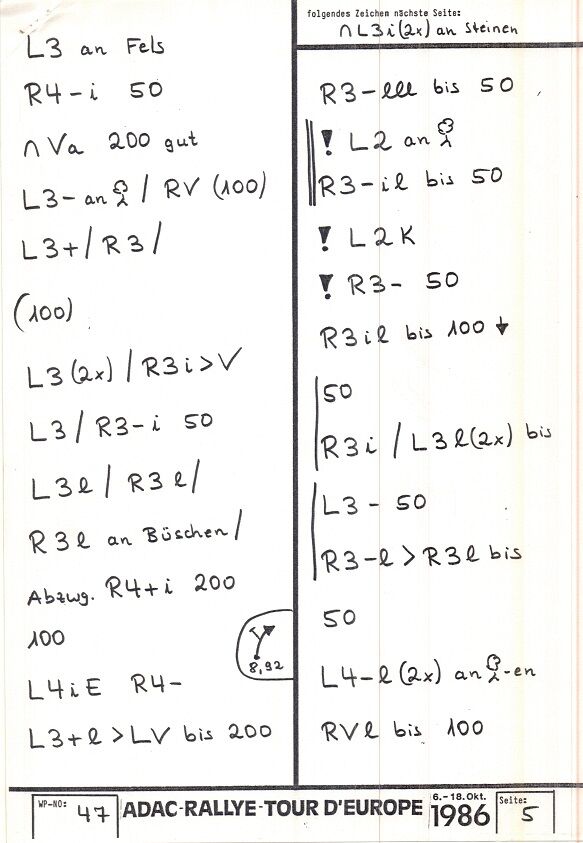 L3 an Fels
R4-i 50
∩ Va 200 gut
L3- an / RV (100)
L3+ / R3 /
(100)
L3 (2x) / R3i > V
L3 / R3-i 50
L3l / R3l /
R3l an Büschen /
Abzwg. R4+i 200
100
8,92
L4iE R4-
L3+l > LV bis 200
folgendes Zeichen nächste Seite:
∩ L3i (2x) an Steinen
R3-lll bis 50
! L2 an
R3-il bis 50
! L2K
! R3- 50
R3il bis 100 ↓
50
R3i / L3l (2x) bis
L3- 50
R3-l > R3l bis
50
L4-l (2x) an -en
RVl bis 100
WP-NO: 47
ADAC-RALLYE-TOUR D'EUROPE
6.-18.Okt.
1986
Seite: 5